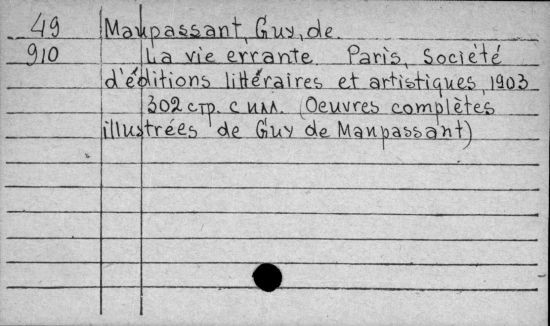 49 Maupassant, Guy, de.
910 La vie errante. Paris, Société
d'éditions littéraires et artistiques, 1903
302 стр. с илл. (Oeuvres complètes
illustrées de Guy de Maupassant)